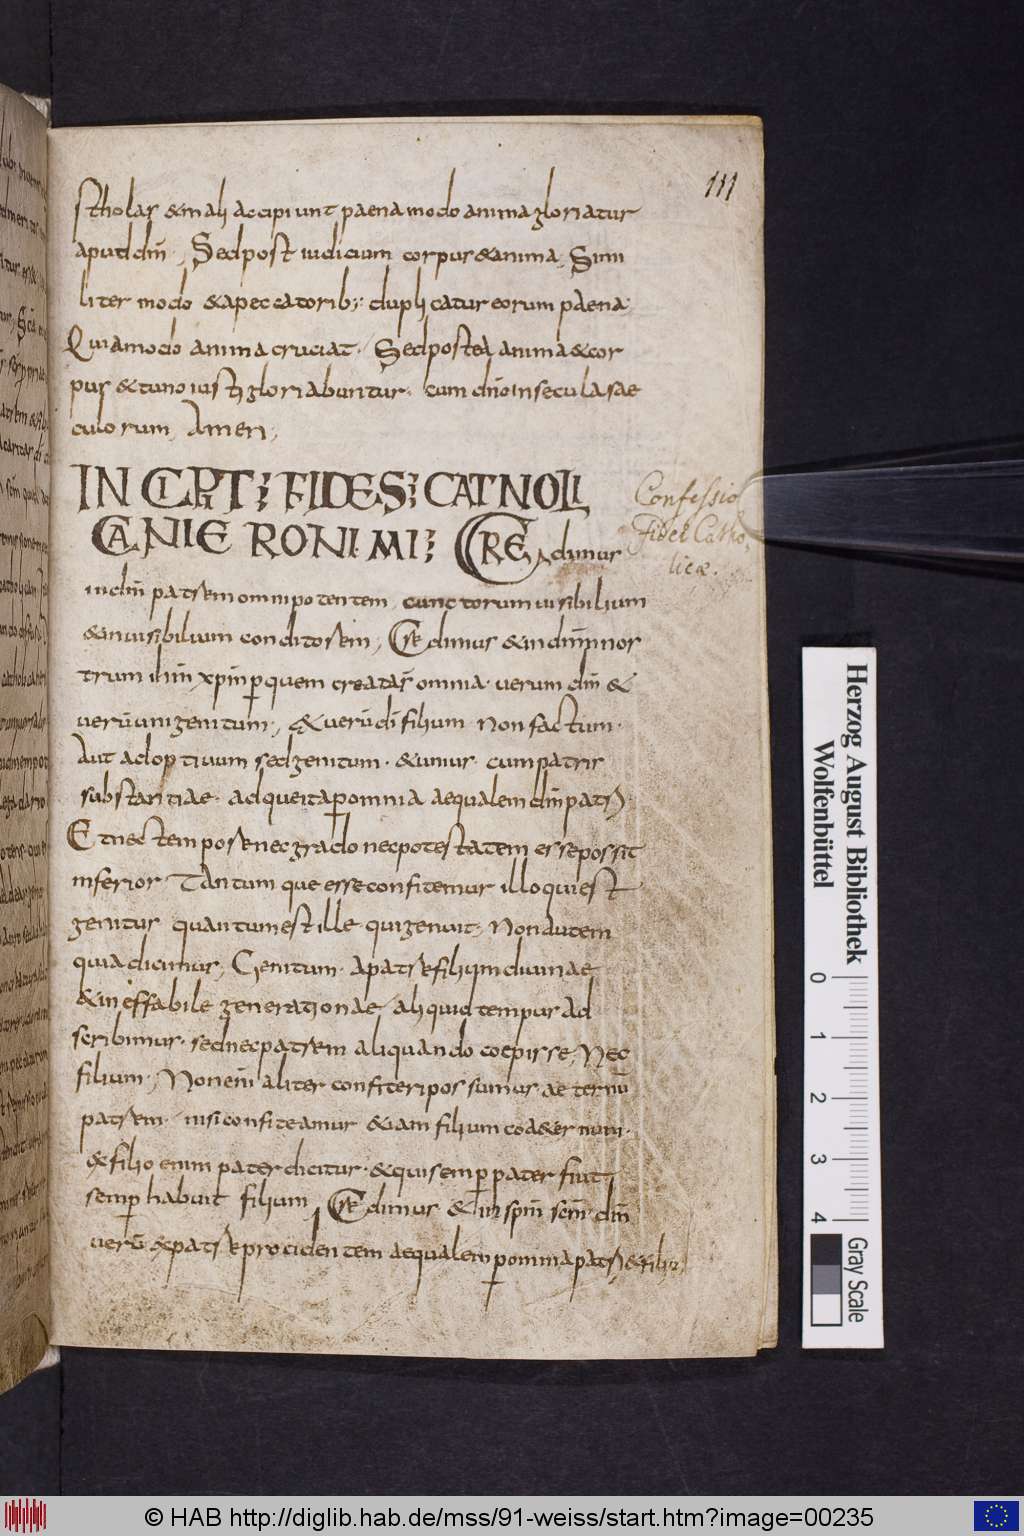 111
stholas & mali accipiunt paena modo anima gloriatur
aput dm̄, Sed post iudicium corpus & anima, Simi
liter modo & a peccatorib; duplicatur eorum paena
Quia modo anima cruciat, Sed postea anima & cor
pus & tunc iusti gloriabuntur, cum dn̄o in secula sae
culorum, Amen,
INCIPT; FIDES; CATHOLI
CA NIERONIMI; CREdimus
Confessio
Fidei Catho
licæ.
in dm̄ patrem omnipotentem, cunctorum uisibilium
& inuisibilium conditorem, Credimus & in dn̄m nos
trum ihm xp̄m p quem creata s̄ omnia, uerum dm̄ &
uerū unigenitum, & uerū di filium non factum,
Aut adoptiuum sed genitum, & unius cum patris
substantiae, ad que ita p omnia aequalem dm̄ patri,
Et nec tempore nec grado nec potestatem esse possit
inferior, Tantum que esse confitemur illo qui est
genitus quantum est ille qui genuit, Non autem
quia dicimus, Genitum, a patre filium diuinae
& ineffabile generationae, aliquid tempus ad
scribimus, sed nec patrem aliquando coepisse, Nec
filium, Non enī aliter confiteri possumus aeternū
patrem, nisi confiteamur & iam filium coa&ernum,
& filio enim pater dicitur, & qui semp pater fuit,
semp habuit filium, Credimus & in spm̄ scm̄ dm̄
uerū ex patre procidentem aequalem p omnia patri & filio,
Herzog August Bibliothek
Wolfenbüttel
0 1 2 3 4
Gray Scale
© HAB http://diglib.hab.de/mss/91-weiss/start.htm?image=00235